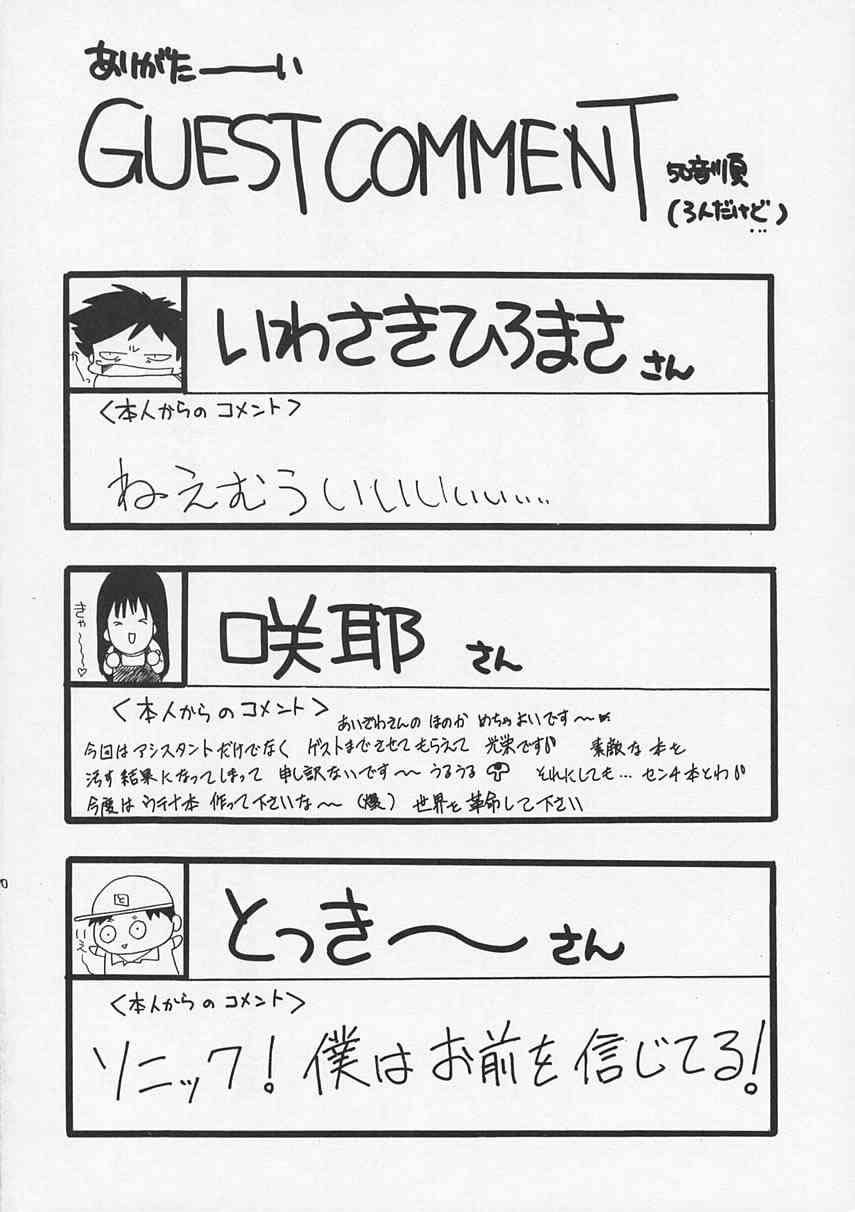 ありがたーーい
GUEST COMMENT
50音順
(ろんだけど…)
いわさきひろまささん
かーっ
<本人からの コメント>
ねえむういいいいいい....
咲耶 さん
きゃ~~~♡
<本人からの コメント>
あいざわさんの ほのか めちゃよいです~
今回は アシスタントだけでなく ゲストまでさせて もらえて 光栄です 素敵な本を
汚す結果になってしまって 申し訳ないです~ うるうる それにしても… センチ本とわ
今度は ウテナ本 作って下さいな~ (爆) 世界を革命して下さい
とっき~ さん
と
いえーい
<本人からの コメント>
ソニック! 僕はお前を信じてる!